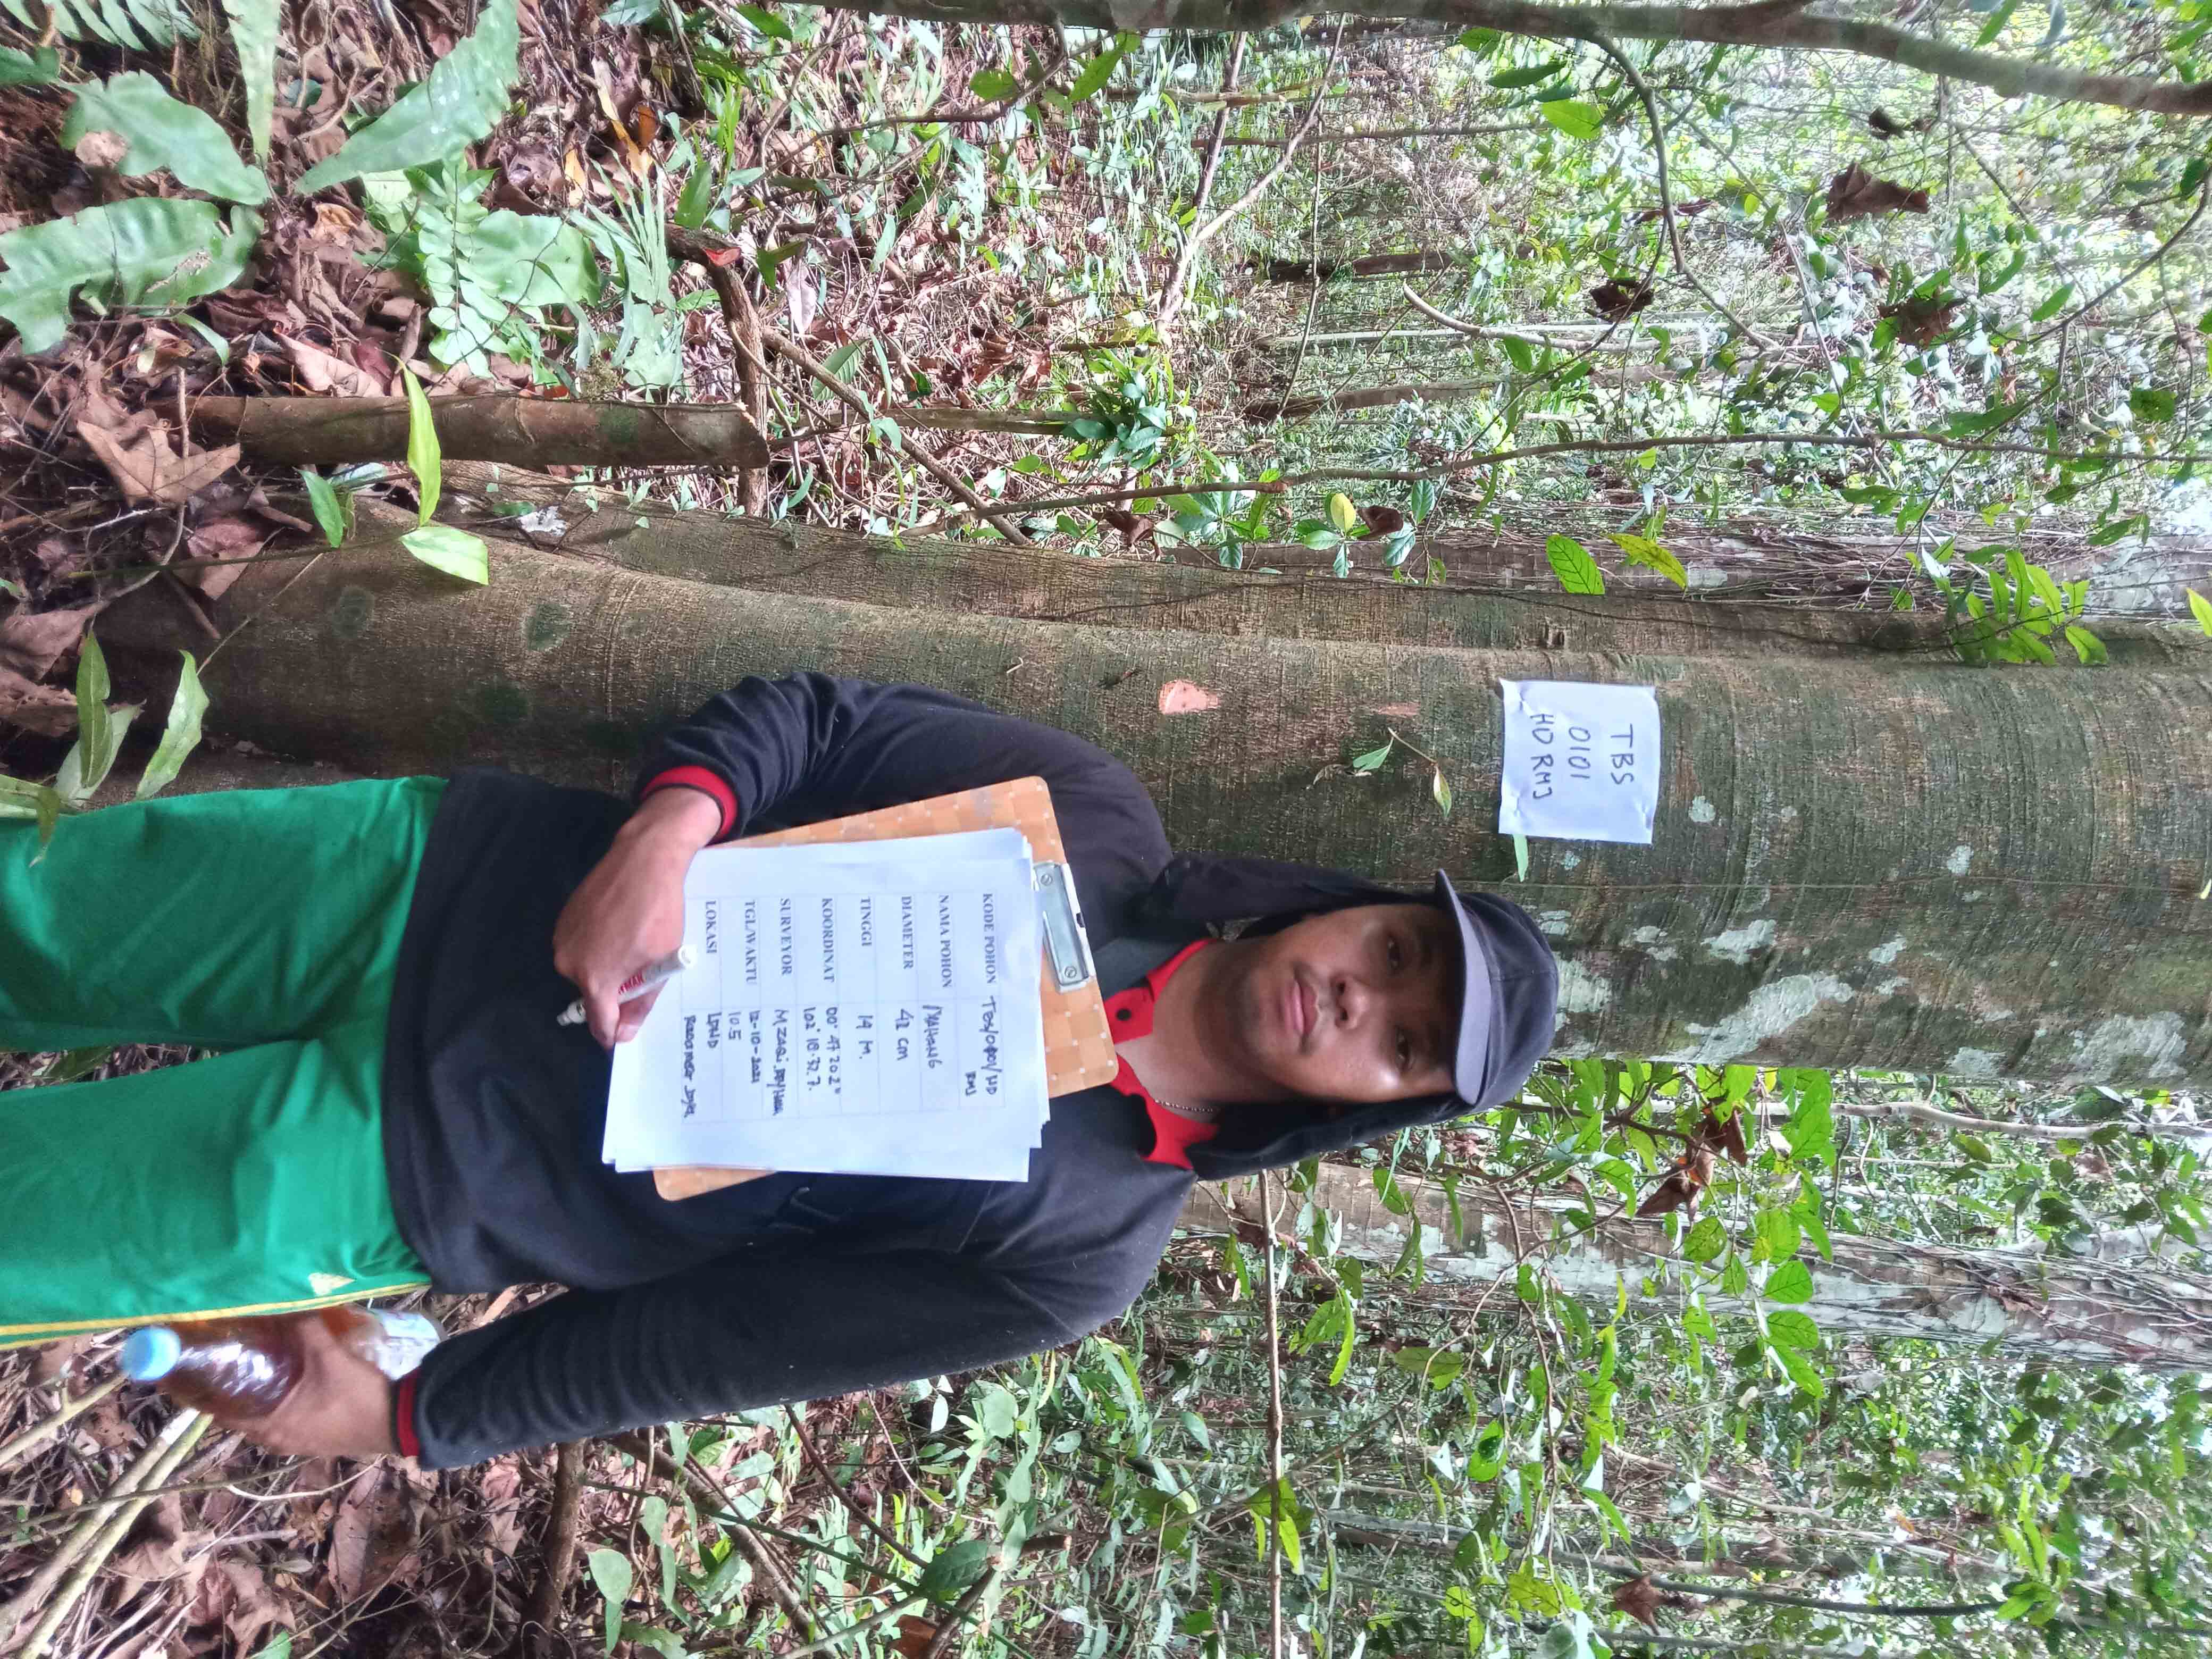 TBS
0101
HD RMJ
KODE POHON TBS/0101/HD
RMJ
NAMA POHON MAHANG
DIAMETER 42 cm
TINGGI 19 M.
KOORDINAT 00° 47 20.2"
102° 18.32.7.
SURVEYOR M ZAQi
TGL/WAKTU 12-10-2021
10.5
LOKASI LDHD